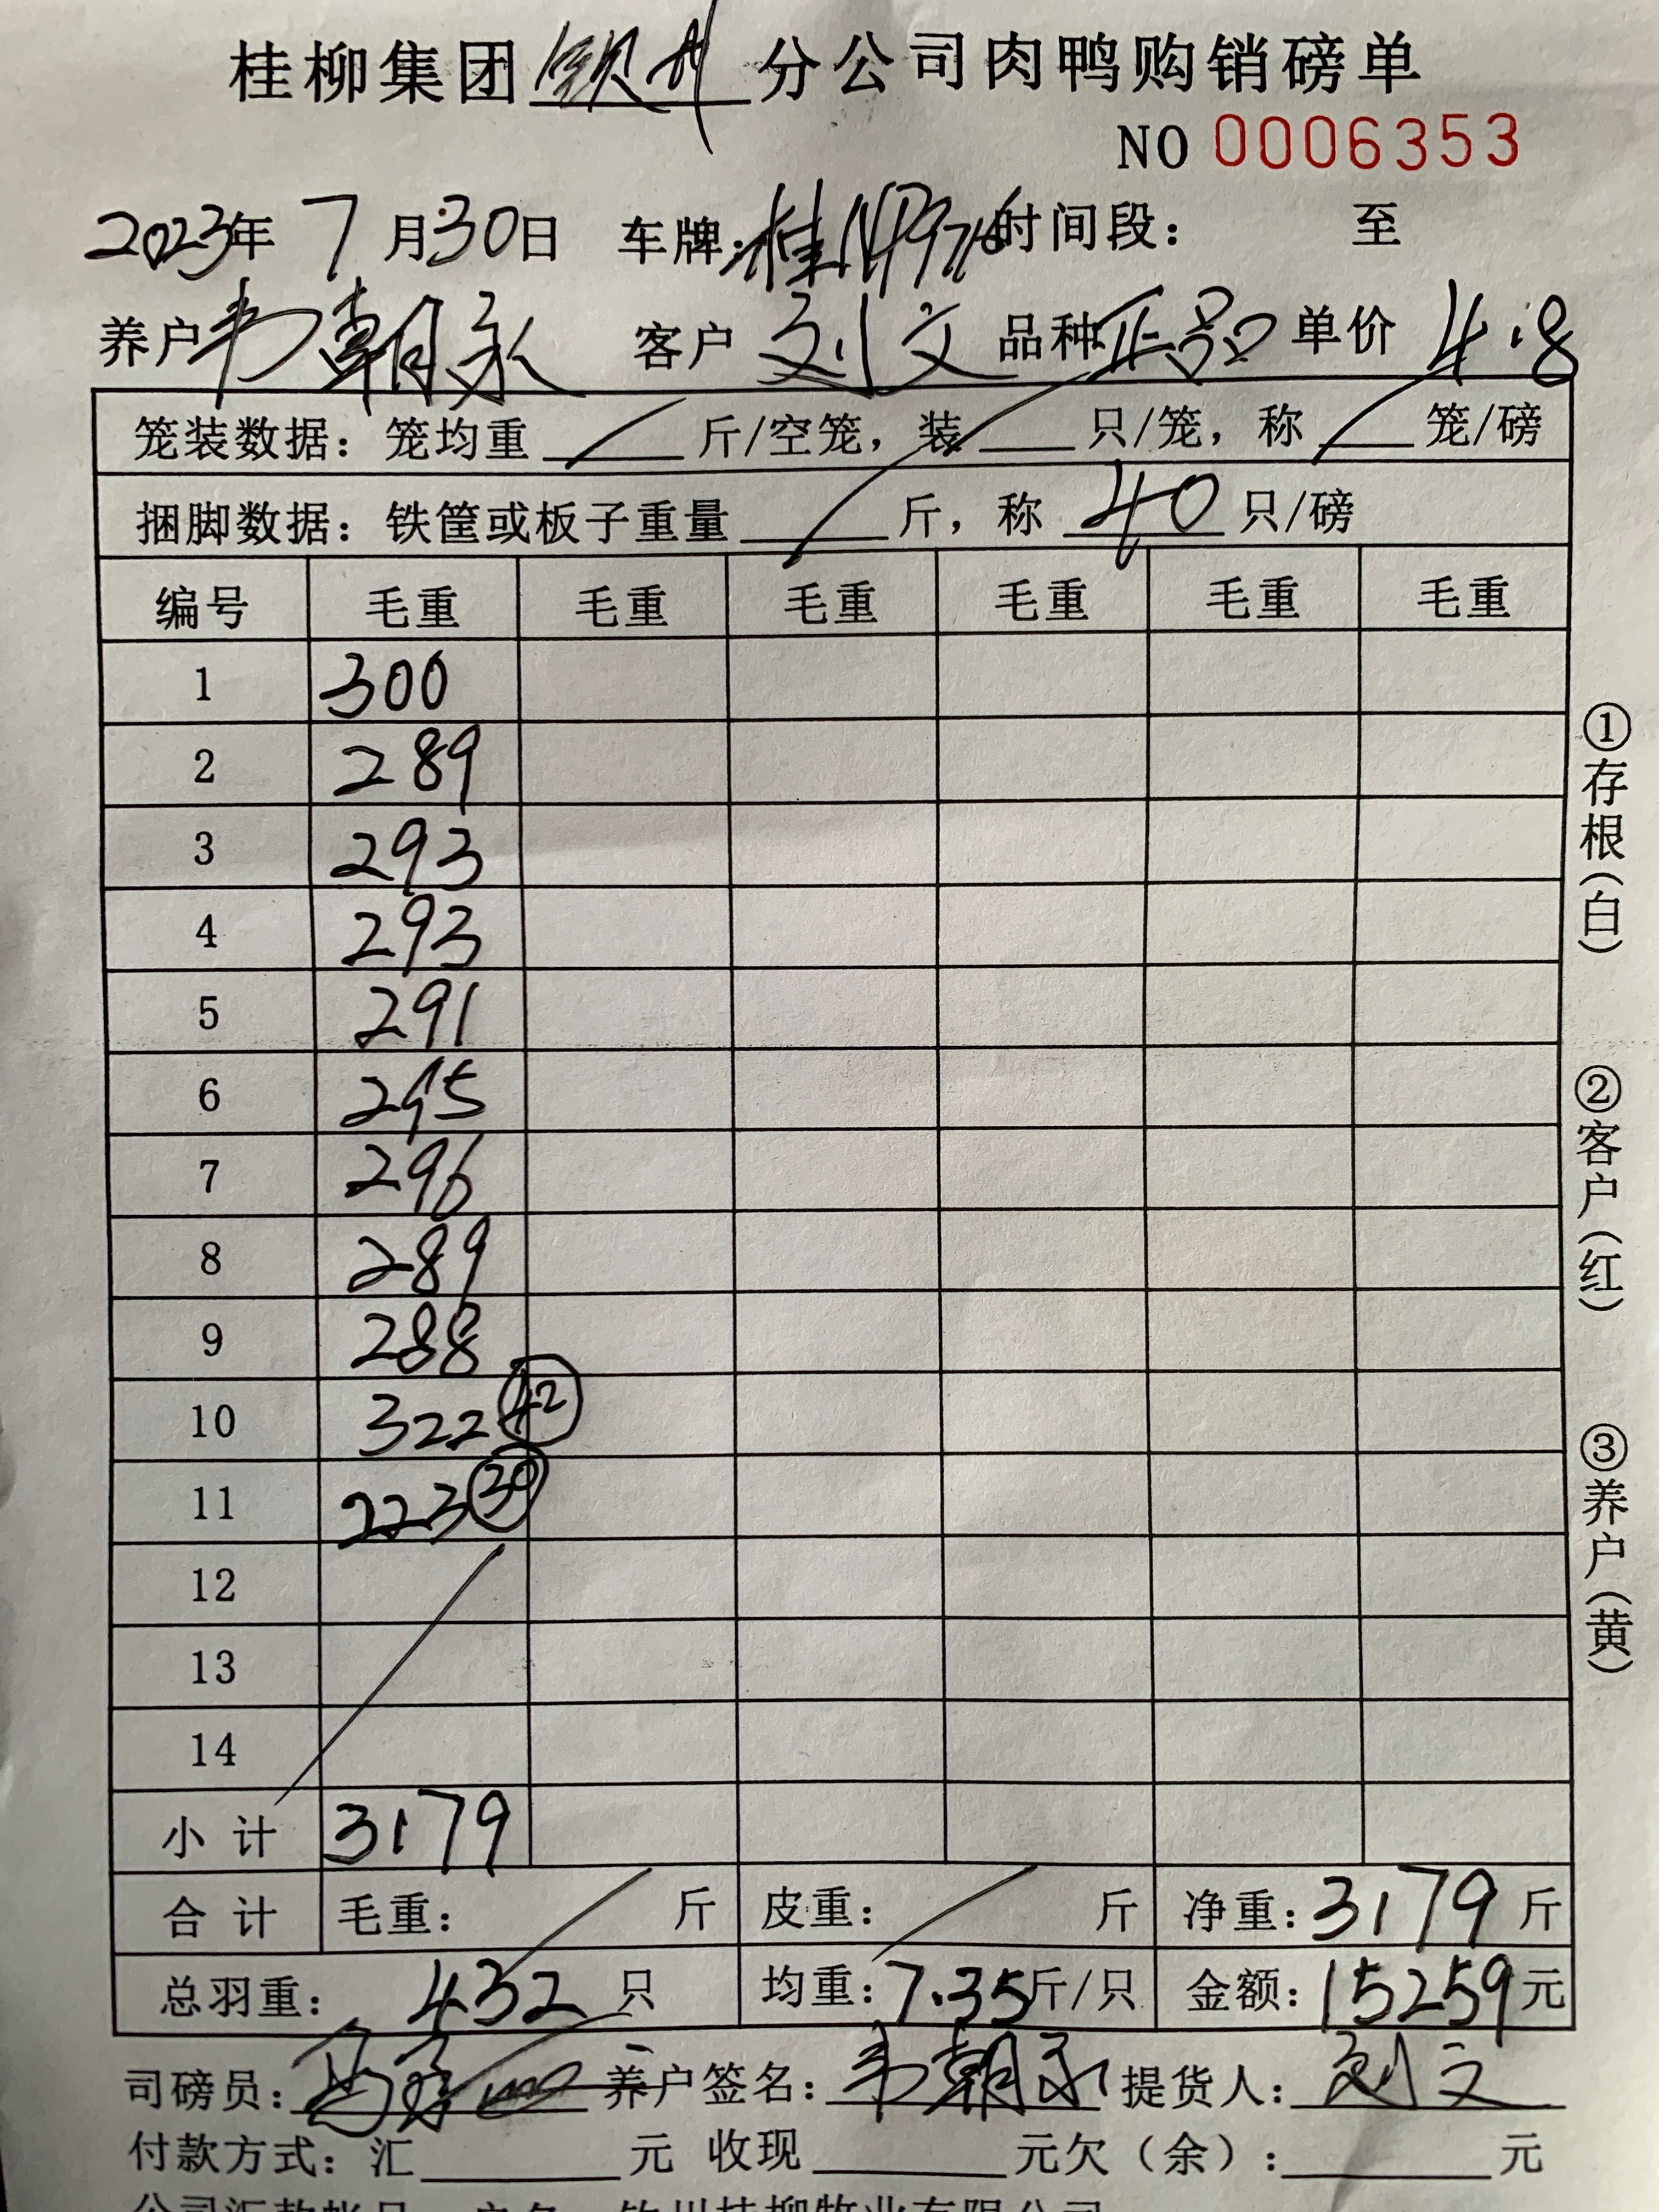 桂柳集团钦州分公司肉鸭购销磅单
NO 0006353
2023年 7月30日 车牌:桂 时间段: 至
养户 韦朝永 客户 刘文 品种 正品 单价 4.8
笼装数据: 笼均重 斤/空笼, 装 只/笼, 称 笼/磅
捆脚数据: 铁筐或板子重量 斤, 称 40 只/磅
编号 毛重 毛重 毛重 毛重 毛重 毛重
1 300
2 289
3 293
4 293
5 291
6 295
7 296
8 289
9 288
10 322 42
11 223 30
12
13
14
小计 3179
合计 毛重: 斤 皮重: 斤 净重: 3179 斤
总羽重: 432 只 均重: 7.35斤/只 金额: 15259元
司磅员: 养户签名: 韦朝永 提货人: 刘文
付款方式: 汇 元 收现 元欠(余): 元
①存根(白)
②客户(红)
③养户(黄)